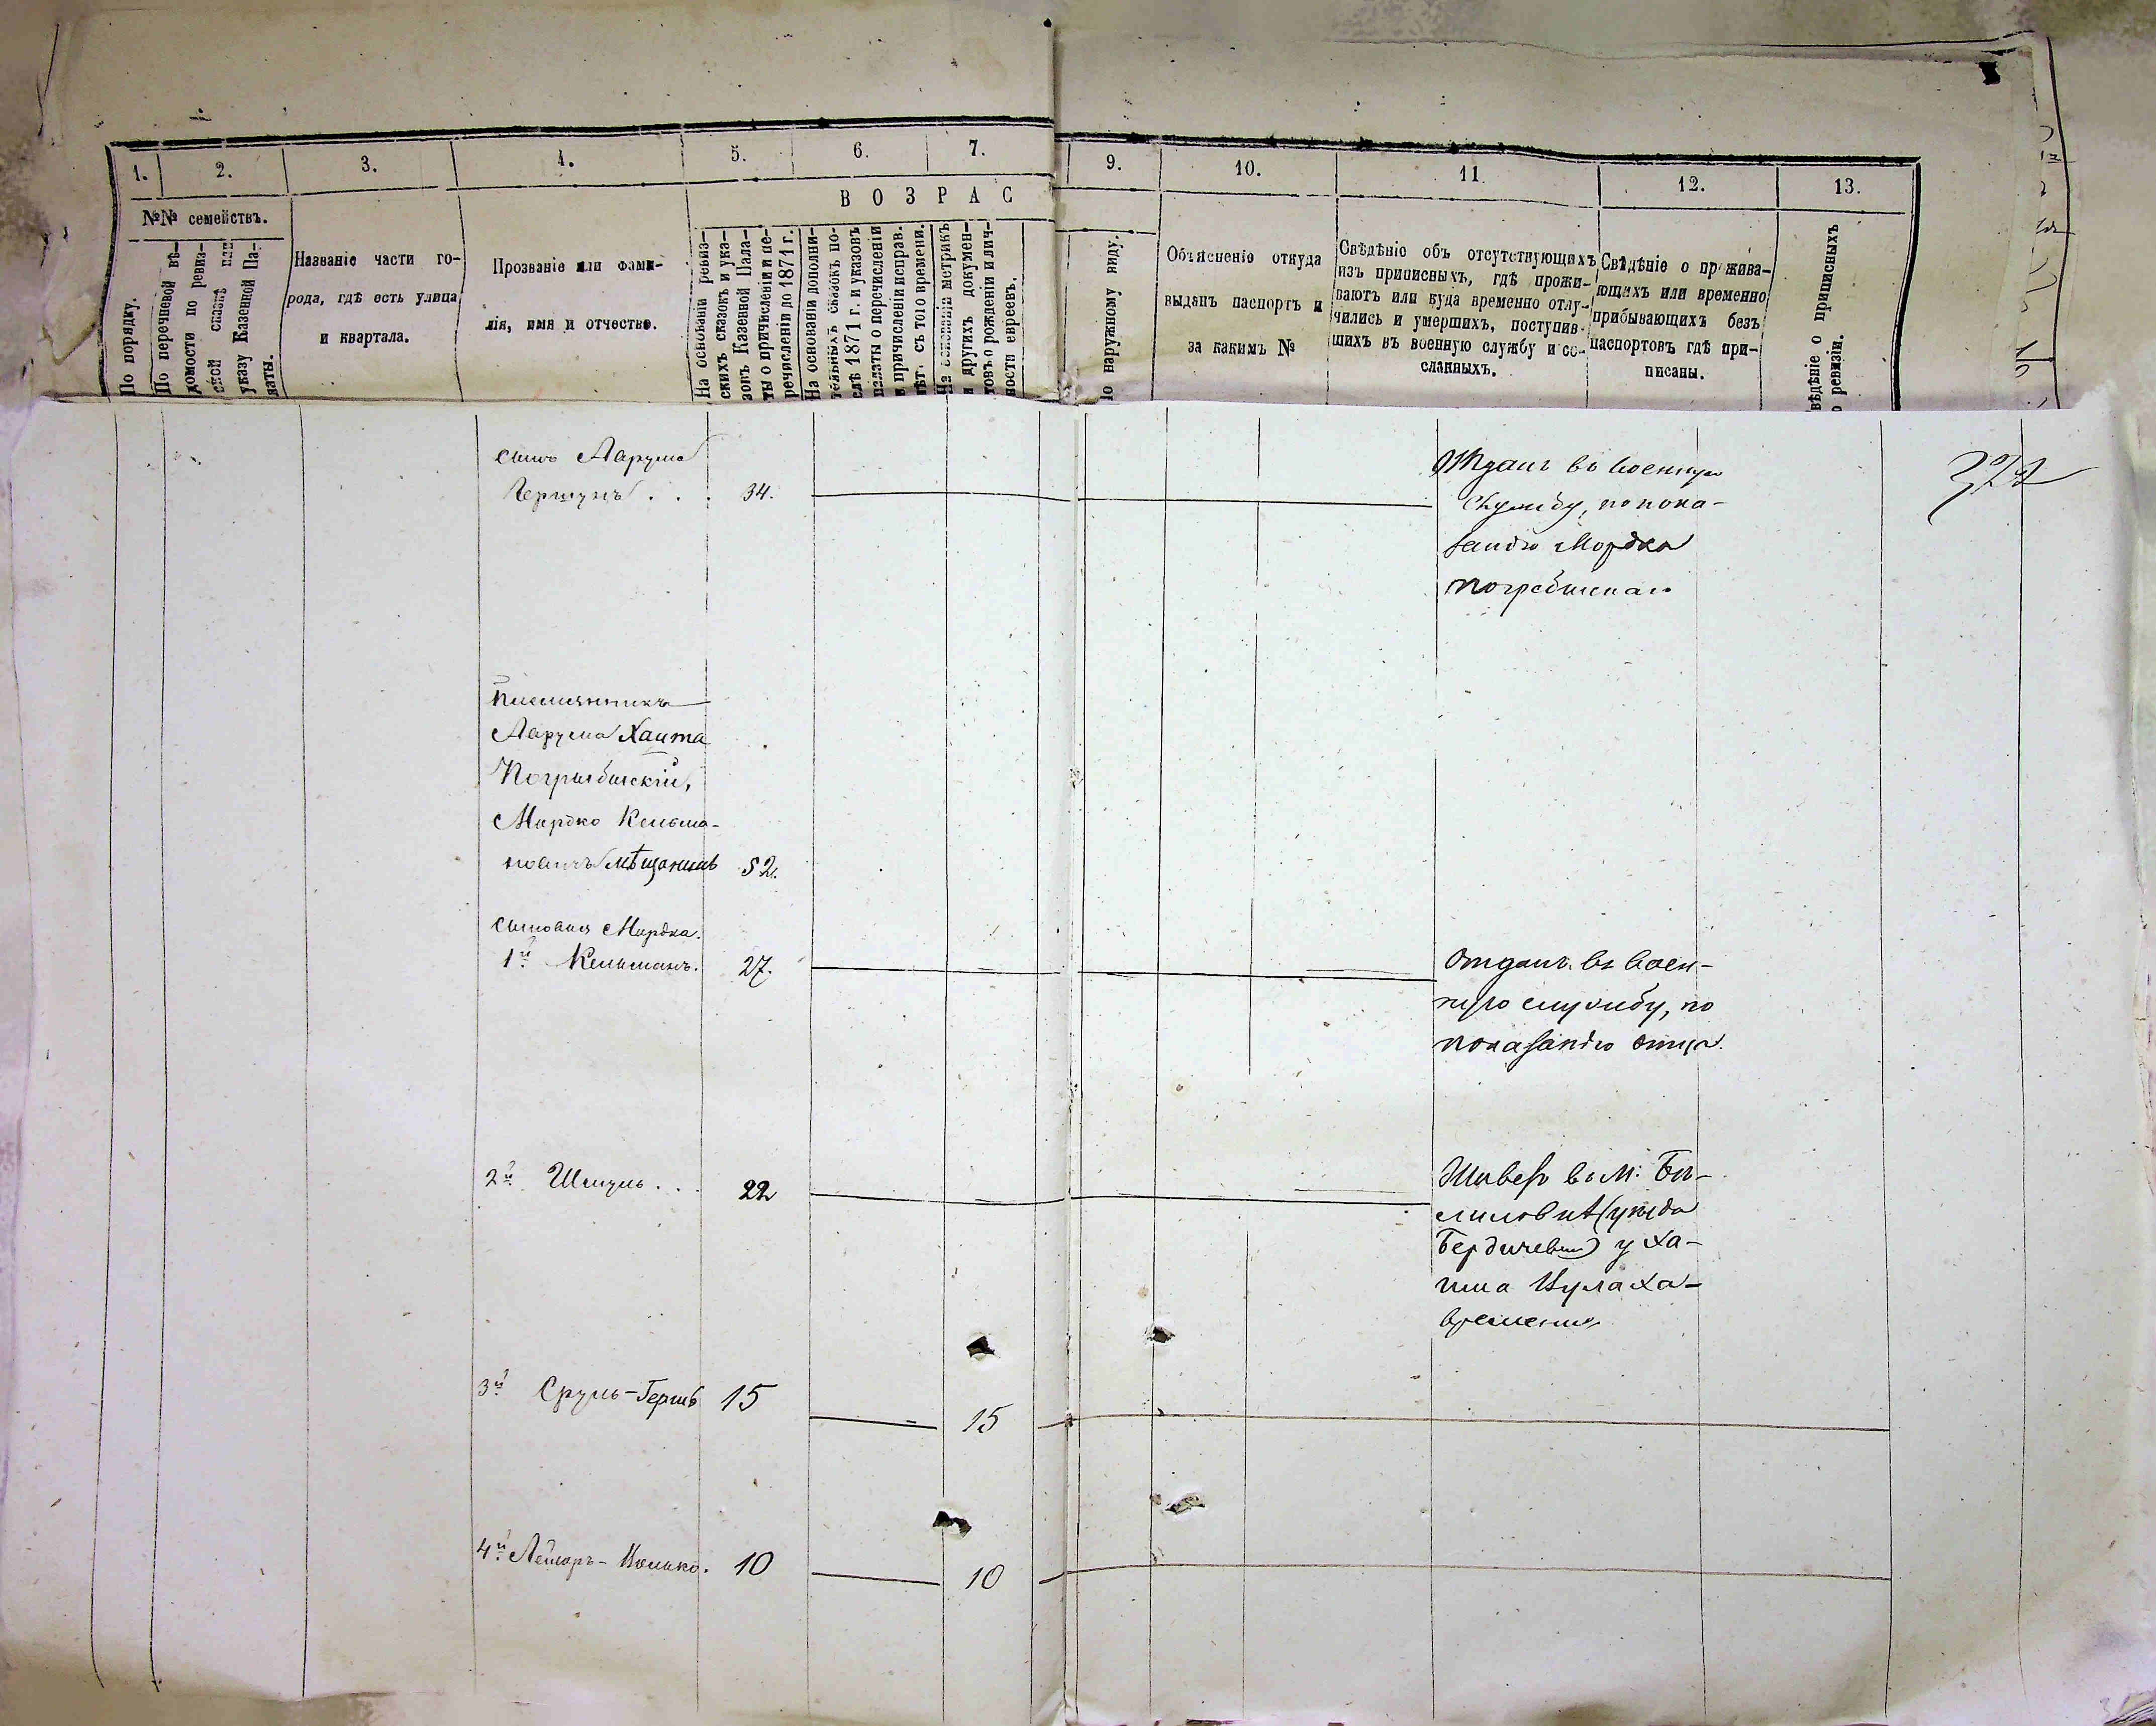 1.
2.
3.
4.
5.
6.
7.
9.
10.
11.
12.
13.
№№ семействъ.
По порядку.
По перечневой вѣ-
домости по ревиз-
ской сказкѣ или
указу Казенной Па-
латы.
Названіе части го-
рода, гдѣ есть улица
и квартала.
Прозваніе или фами-
лія, имя и отчество.
ВОЗРАС
На основаніи ревиз-
скихъ сказокъ и ука-
зокъ Казенной Пала-
ты о причисленіи и пе-
речисленіи до 1871 г.
На основаніи дополни-
тельныхъ сказокъ по-
слѣ 1871 г. и указовъ
палаты о перечисленіи
и причисленіи исправ.
лѣт. съ того времени.
На основаніи метрикъ
и другихъ докумен-
товъ о рожденіи и лич-
ности евреевъ.
по наружному виду.
Объясненіе откуда
выданъ паспортъ и
за какимъ №
Свѣдѣніе объ отсутствующихъ
изъ приписныхъ, гдѣ прожи-
ваютъ или куда временно отлу-
чились и умершихъ, поступив-
шихъ въ военную службу и со-
сланныхъ.
Свѣдѣніе о прожива-
ющихъ или временно
прибывающихъ безъ
паспортовъ гдѣ при-
писаны.
вѣдѣніе о приписныхъ
о ревизіи.
сынъ Ларума
Гершунъ . . . 34.
Отданъ въ военную
службу, по пока-
занію Мордка
Погребискаго
Племянникъ
Ларума Хаита
Погрыбискій,
Мордко Кельма-
новичъ мѣщанинъ 52.
сыновья Мордка.
1й Кельманъ. 27.
Отданъ въ воен-
ную службу, по
показанію отца.
2й Шмуль . . . 22
Живетъ въ м: Бѣ-
лиловкѣ (уѣзда
Бердичевск) у Ха-
има
временно
3й Сруль-Гершъ 15
15
4й Лейзоръ- 10
10